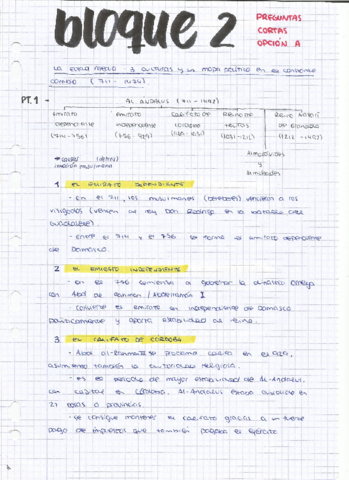 bloque 2
PREGUNTAS
CORTAS
OPCIÓN A
LA EDAD MEDIA 3 culturas y un mapa político en constante
cambio (711-1474)
PT. 1 - AL ANDALUS (711-1492)
Emirato Emirato Califato de Reino de Reino Nazarí
dependiente independiente Córdoba taifas de Granada
(714-756) (756-929)
Almorávides
y
Almohades
invasión musulmana
1. EL EMIRATO DEPENDIENTE
- En el 711, los musulmanes vencieron a los
visigodos (vencen al rey Don Rodrigo en la batalla de
Guadalete)
- entre el 714 y el 756 se forma el emirato dependiente
de Damasco.
2. EL EMIRATO INDEPENDIENTE
- en el 756 comienza a gobernar la dinastía Omeya
con Abd al-Rahman / Abderramán I
- convierte el emirato en independiente de Damasco
políticamente y aporta estabilidad al reino.
3. EL CALIFATO DE CÓRDOBA
- Abd al-Rahman III se proclama califa en el 929,
asumiendo también la autoridad religiosa.
- es el período de mayor estabilidad de Al-Andalus,
con capital en Córdoba. Al-Andalus estaba dividido en
21 coras o provincias.
- se consigue mantener el califato gracias a un fuerte
pago de impuestos que también pagaba el ejército